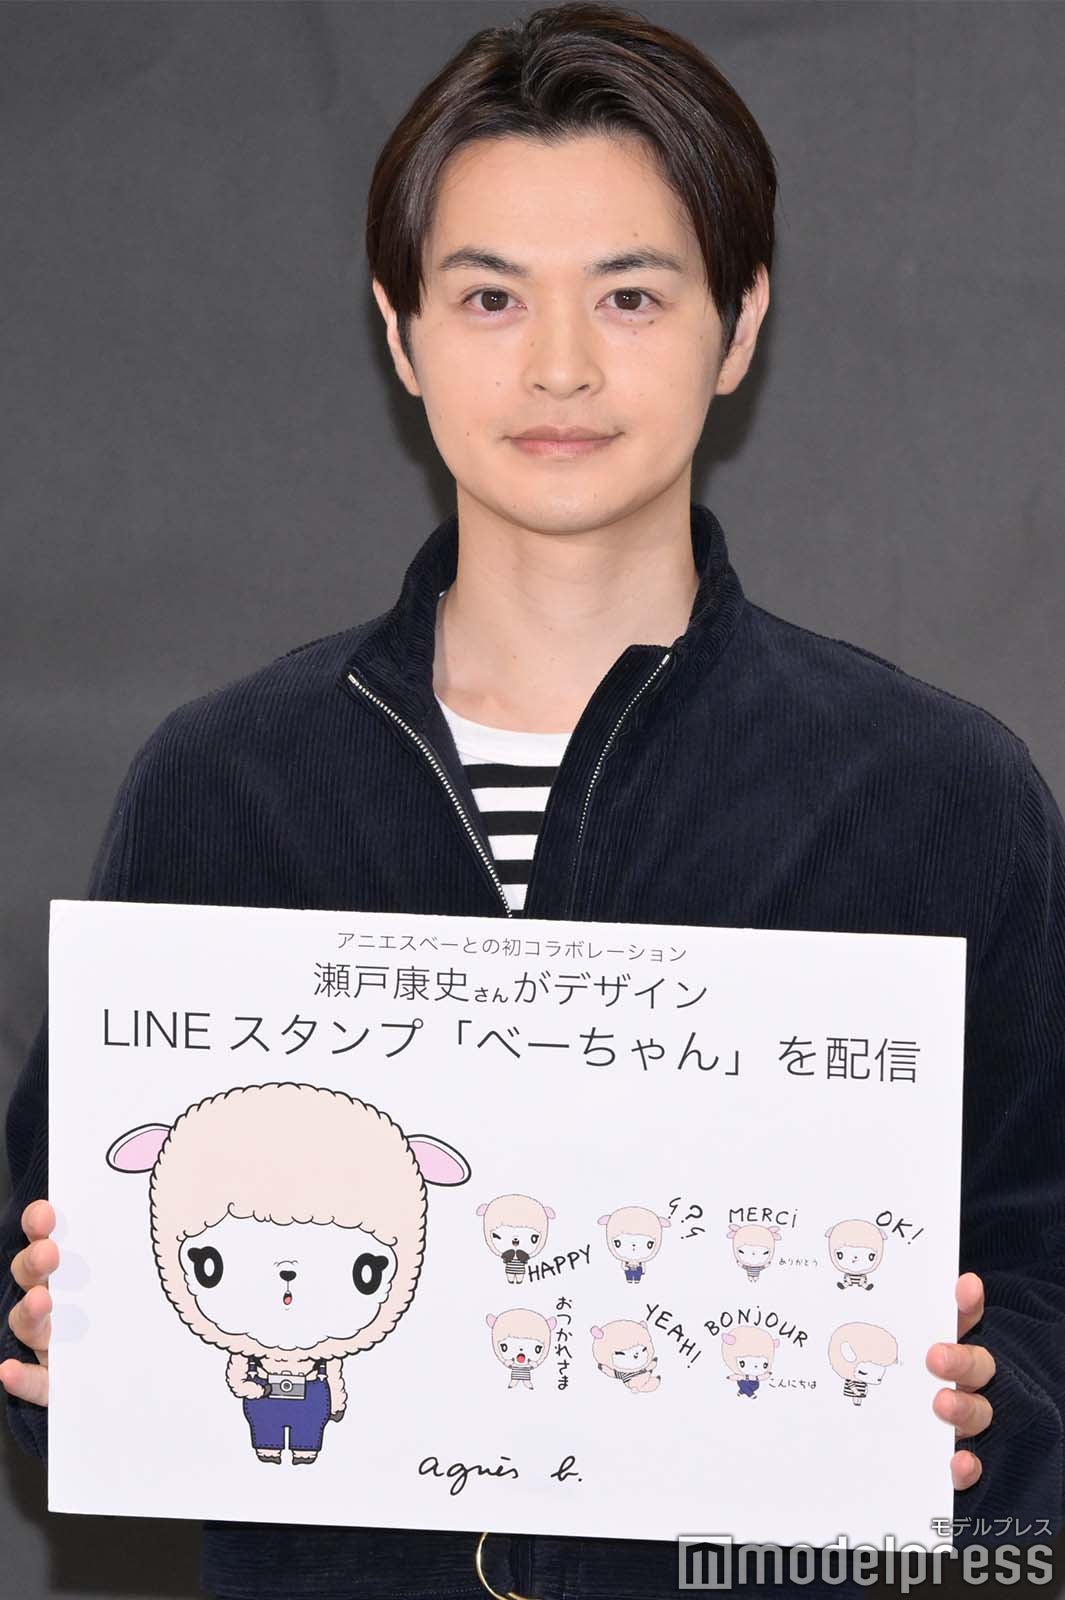 アニエスベーとの初コラボレーション
瀬戸康史さんがデザイン
LINE スタンプ「べーちゃん」を配信
HAPPY
???
MERCi
ありがとう
OK!
おつかれさま
YEAH!
BONjOUR
こんにちは
agnès b.
モデルプレス
modelpress